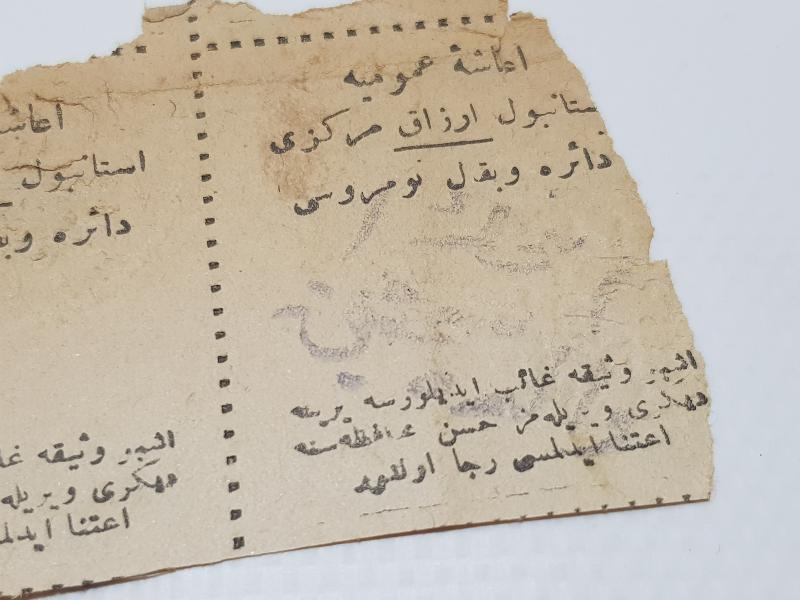 اعاشهٔ عمومیه
ستانبول ارزاق مرکزی
دائره وبقال نومروسی
وثیقه غائب ایدیلورسه یرینه
دیکری ویریله مز حسن محافظه سنه
اعتنا ایدلمسی رجا اولنور
اعاشه
استانبول
دائره وبق
وثیقه غا
دیکری ویریله
اعتنا ایدلم